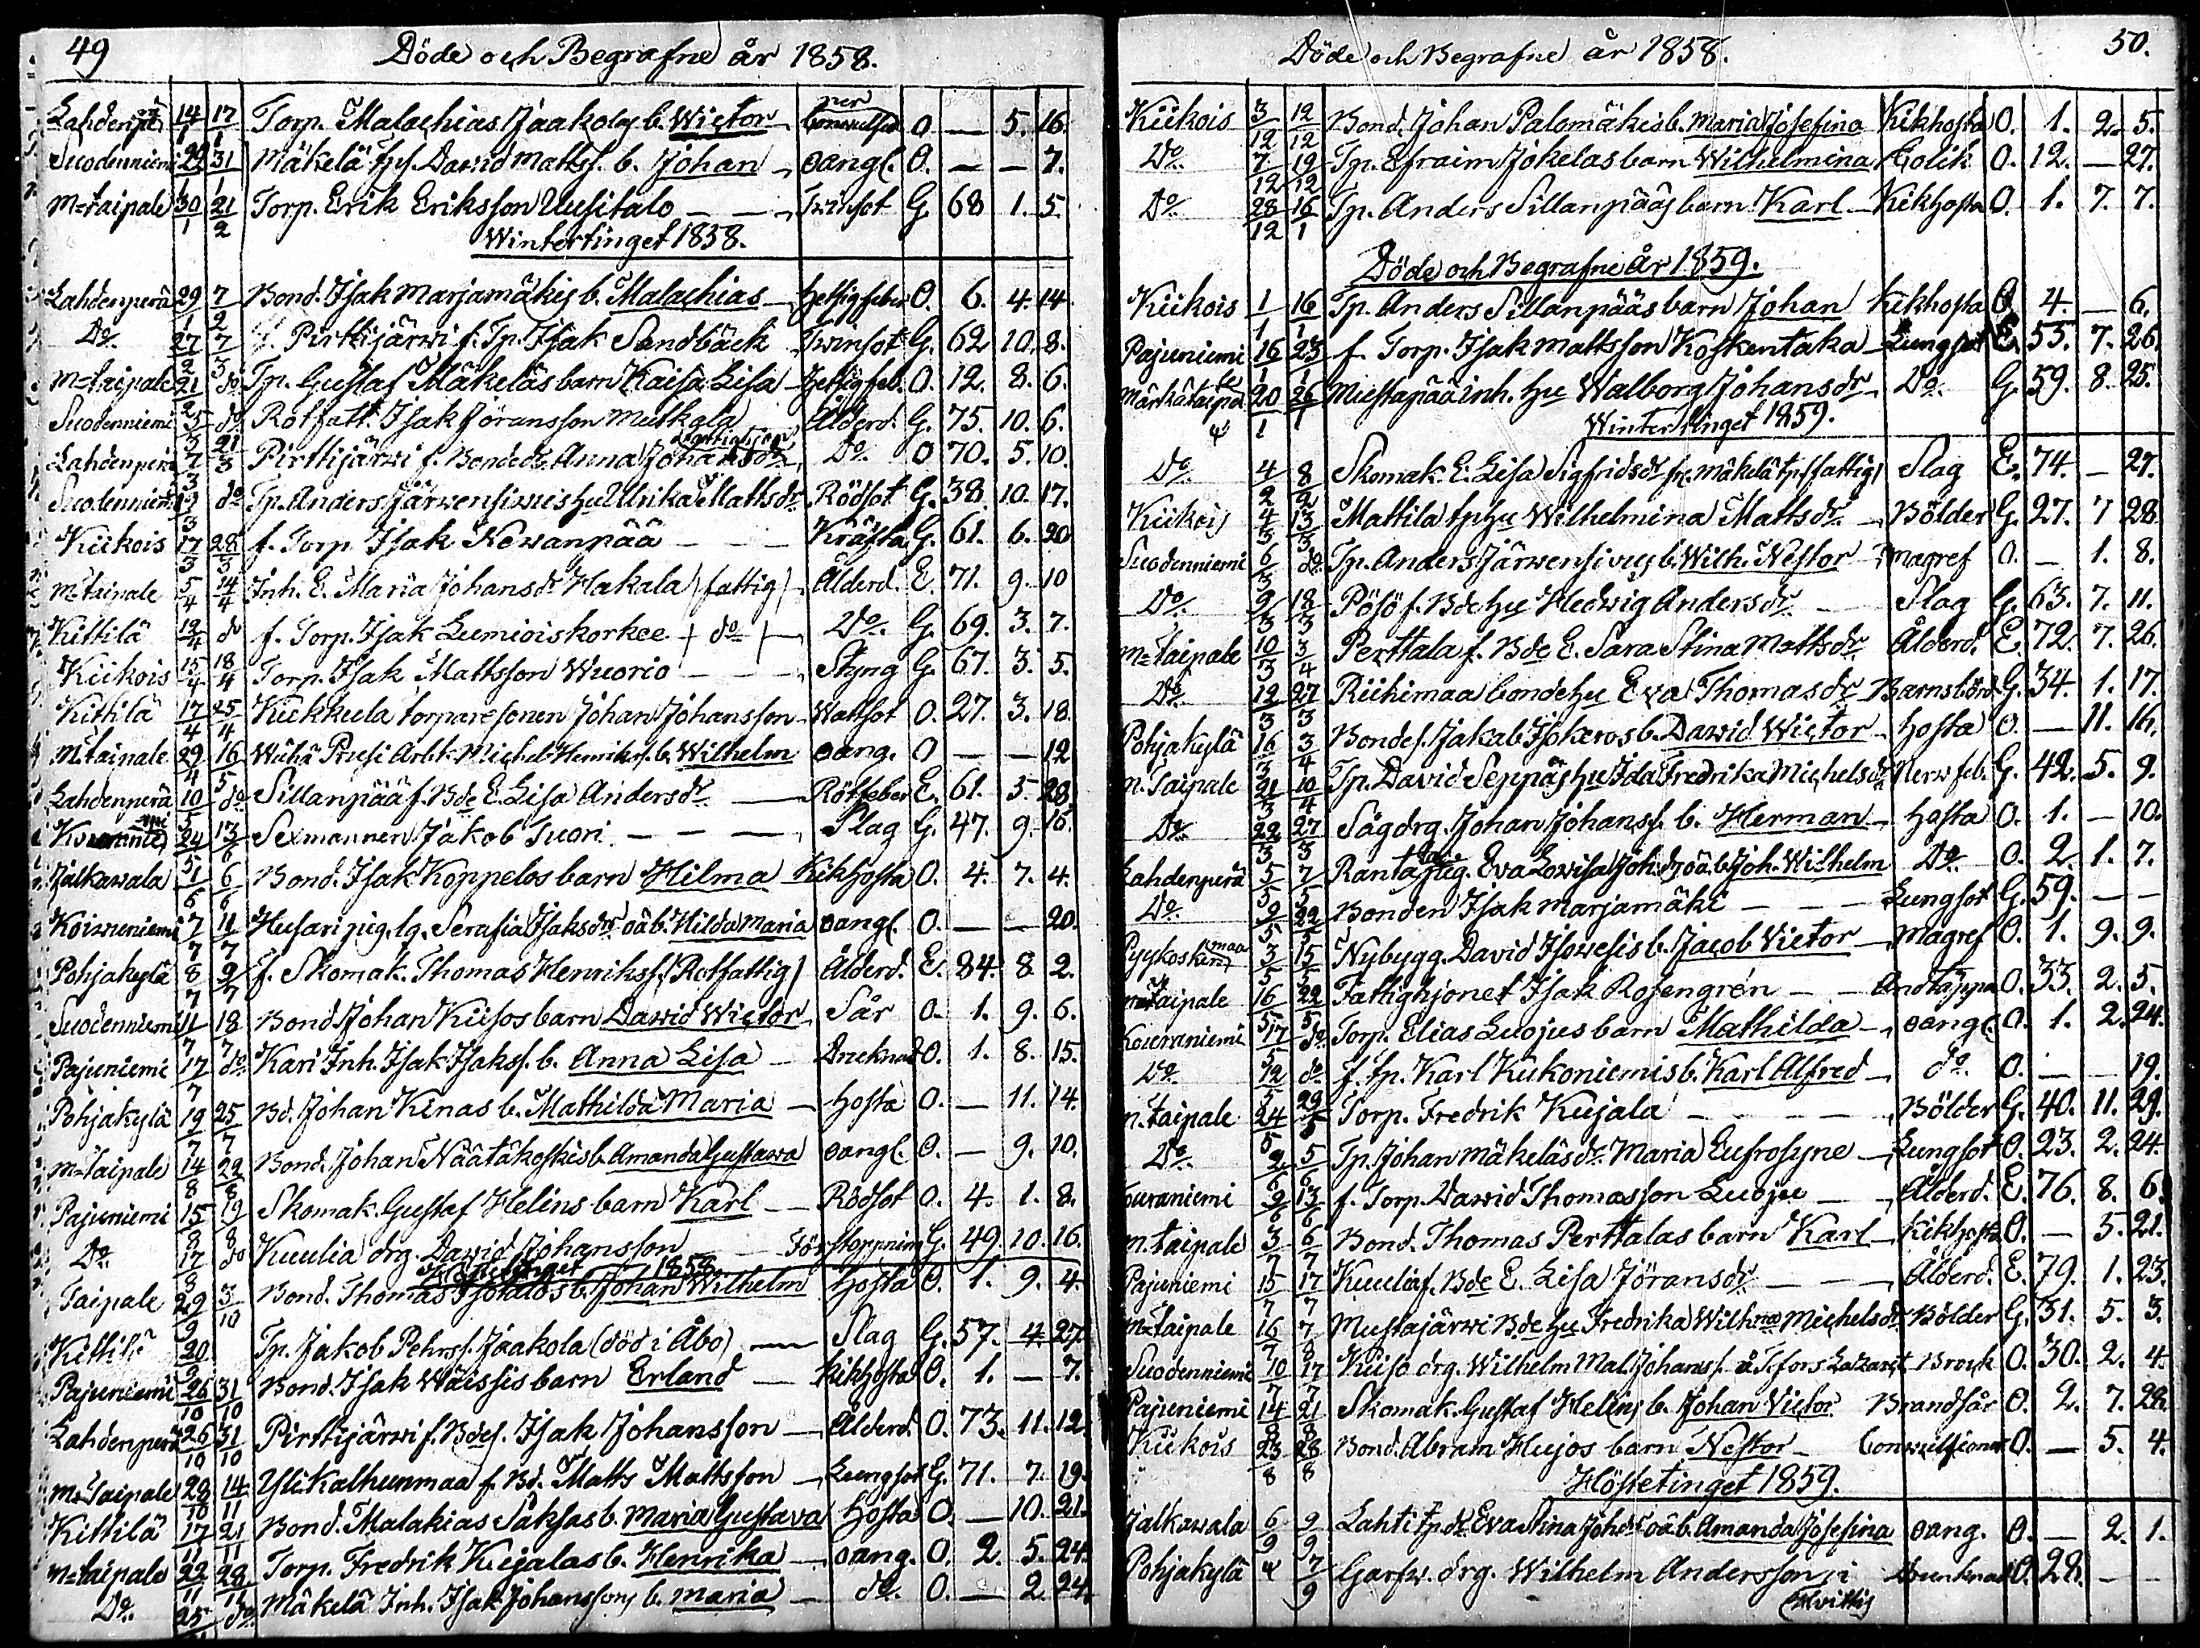 49 Döde och Begrafne år 1858.
Lahdenperä 14/1 17/1 Torp. Malachias Jaakolas b. Wictor — O — 5. 16.
Suodenniemi 31/1 Mäkelä David Mattss. b. Johan — oangf. O. — — 7.
M=taipale 30/1 21/2 Torp. Erik Eriksson Uusitalo — — Twinsot G. 68 1. 5.
Wintertinget 1858.
Lahdenperä 29/1 7/2 Bond. Isak Marjamäkis b. Malachias — Hettigfeber O. 6. 4. 14
Do. 27/2 7/3 Pirttijärwi f. Tp. Isak Sandbäck Twinsot G. 62 10. 8.
M=taipale 21/2 do Tp. Gustaf Mäkeläs barn Kaisa Lisa Hettigfeb. O. 12. 8. 6.
Suodenniemi 25 do Rotfatt. Isak Jöransson Mutkala Ålderd. G. 75. 10. 6.
Lahdenperä 7/3 21/3 Pirttijärwi f. Bondedr Anna Johansdr Do. O 70. 5. 10.
Suodenniemi 19/3 do Tp. Anders Järwensiwus hu Ulrika Mattsdr Rödsot G. 38. 10. 17.
Kiikois 17/3 28/3 f. Torp. Isak Kewanpää — — Kräfta G. 61. 6. 20
M=taipale 5/4 14/4 Inh. E. Maria Johansdr Hakala (fattig) Ålderd. E. 71. 9. 10
Kittilä 12/4 do f. Torp. Isak Lumioiskorkee (do) — Do. G. 69. 3. 7.
Kiikois 15/4 18/4 Torp. Isak Mattsson Wuorio — — Styng G. 67. 3. 5.
Kittilä 17/4 25/4 Kukkula torparesonen Johan Johansson Wattsot O. 27. 3. 18.
M=taipale 29/4 16/5 Wähä Prusi Arbk. Michel Henrikss. b. Wilhelm oang. O — — 12
Lahdenperä 10/5 do Sillanpää f. Bde E. Lisa Andersdr — Rötfeber E. 61. 5. 28.
24/5 13/6 Sexmannen Jakob Tuori — — — Slag G. 47. 9. 16.
Jalkawala 1/6 6/6 Bond. Isak Koppelos barn Hilma Kikhosta O. 4. 7. 4.
Koiwuniemi 7/7 11/7 Husari pig. Serafia Isaksdrs oä b. Hilda Maria oangf. O. — — 20.
Pohjakylä 8/7 9/7 f. Skomak. Thomas Henrikss. (Rotfattig) Ålderd. E. 84. 8 2.
Suodenniemi 11/7 18/7 Bond. Johan Kiisos barn Dawid Wictor Sår O. 1. 9. 6.
Pajuniemi 17/7 do. Kari Inh. Isak Isakss. b. Anna Lisa — Drucknad O. 1. 8. 15.
Pohjakylä 19/7 25/7 Bd. Johan Kinas b. Mathilda Maria — Hosta O. — 11. 14.
M=taipale 14/8 22/8 Bond. Johan Näätäkoskis b. Amanda Gustawa oangf. O. — 9. 10.
Pajuniemi 15/8 19/8 Skomak. Gustaf Helins barn Karl — Rödsot O. 4. 1. 8.
Do. 17/8 do Kuulia drg. Dawid Johansson Förstoppning G. 49 10. 16.
1858
Taipale 29/9 3/10 Bond. Thomas Isotalos b. Johan Wilhelm Hosta O. 1. 9. 4.
Kittilä 20/9 Tp. Jakob Pehrss. Jaakola (död i Åbo) — Slag G. 57. 4. 27.
Pajuniemi 26/10 31/10 Bond. Isak Wäissis barn Erland — Kikhosta O. 1. — 7.
Lahdenperä 26/10 31/10 Pirttijärwi f. Bdes. Isak Johansson — Ålderd. O. 73. 11. 12.
M=Taipale 28/10 14/11 Ylikalhunmaa f. Bd. Matts Mattsson — Lungsot G. 71. 7. 19.
Kittilä 17/11 21/11 Bond. Malakias Saksas b. Maria Gustava Hosta O. — 10. 21.
M=taipale 22/11 28/11 Torp. Fredrik Kujalas b. Henrika — oang. O. 2. 5. 24.
Do. 25 do. Mäkelä Inh. Isak Johanssons b. Maria — do. O. — 2 24.
Döde och Begrafne år 1858. 50.
Kiikois 3/12 12/12 Bond. Johan Palomäkis b. Maria Josefina Kikhosta O. 1. 2. 5.
Do. 7/12 12/12 Tp. Efraim Jokelas barn Wilhelmina Colik O. 12. — 27.
Do. 28/12 16/1 Tp. Anders Sillanpääs barn Karl — Kikhosta O. 1. 7. 7.
Döde och Begrafne år 1859.
Kiikois 1/1 16/1 Tp. Anders Sillanpääs barn Johan Kikhosta O. 4. — 6.
Pajuniemi 16/1 23/1 f. Torp. Isak Mattsson Koskentaka — Lungsot E. 55. 7. 26.
20/1 26/1 Mustapää inh. hu Walborg Johansdr — Do. G. 59. 8 25.
Wintertinget 1859.
Do 4/2 8/2 Skomak. E. Lisa Sigfridsdr fr. Mäkelä (fattig) Slag E. 74. — 27.
Kiikois 4/3 13/3 Mattila tp hu Wilhelmina Mattsdr — Bölder G. 27. 7 28
Suodenniemi 6/3 do Tp. Anders Järwensivus b. Wilh. Nestor — Magref O. — 1. 8.
Do. 9/3 18/3 Pösö f. Bde hu Hedwig Andersdr — Slag G. 63. 7. 11.
M=taipale 10/3 3/4 Perttala f. Bde E. Sara Stina Mattsdr Ålderd. E. 72. 7. 26.
Do. 12/3 27/3 Riikimaa bonde hu Eva Thomasdr Barnsbörd G. 34. 1. 17.
Pohjakylä 16/3 3/4 Bondes. Jakob Jokeros b. Dawid Wictor — Hosta O. — 11. 16.
M. Taipale 21/3 10/4 Tp. David Seppäs hu Ida Fredrika Michelsdr Nerwfeb. G. 42. 5. 9.
Do. 22/3 27/3 Sågdrg. Johan Johanss. b. Herman — Hosta O. 1. — 10.
Lahdenperä 5/5 7/5 Ranta pig. Eva Lowisa Joh.drs oä b. Joh. Wilhelm Do. O. 2 1. 7.
Do. 9/5 22/5 Bonden Isak Marjamäki — — Lungsot G. 59. — —
Pyykoskenmaa 3/5 15/5 Nybygg. David Isowesis b. Jacob Victor — Magref O. 1. 9. 9.
M=taipale 16/5 22/5 Fattighjonet Isak Rosengrén — — Andtäppa O. 33. 2. 5.
Kouraniemi 17/5 do Torp. Elias Luojus barn Mathilda — oangf. O. 1. 2. 24.
Do. 12/5 do f. tp. Karl Kukoniemis b. Karl Alfred — do. O. — — 19.
M. taipale 24/5 29/5 Torp. Fredrik Kujala — — — Bölder G. 40. 11. 29.
Do. 2/6 5/6 Tp. Johan Mäkeläs dr. Maria Eufrosyne — Lungsot O. 23. 2. 24.
Kouraniemi 9/6 13/6 f. Torp. Dawid Thomasson Luoju — — Ålderd. E. 76. 8. 6.
M. taipale 3/7 6/7 Bond. Thomas Perttalas barn Karl — Kikhosta O. — 5. 21.
Pajuniemi 15/7 17/7 Kuulia f. Bde E. Lisa Jöransdr — — Ålderd. E. 79. 1. 23.
M=taipale 16/7 7/8 Mustajärwi Bde hu Fredrika Wilhna Michelsdr Bölder G. 31. 5. 3.
Suodenniemi 10/7 17/7 Kiiso drg. Wilhelm Mal. Johanss. å H.fors Lazaret Bråck O. 30. 2. 4.
Pajuniemi 14/8 21/8 Skomak. Gustaf Helins b. Johan Victor Brandsår O. 2. 7. 22.
Kiikois 23/8 28/8 Bond. Abram Hujos barn Nestor — Convulsioner O. — 5. 4.
Höstetinget 1859.
Jalkawala 6/9 9/9 Lahti tp.dr Eva Stina Joh.drs oä b. Amanda Josefina oang. O. — 2. 1.
Pohjakylä 4 7/9 Garfw. drg. Wilhelm Andersson i Drunknad O. 28. — —
Hvittis